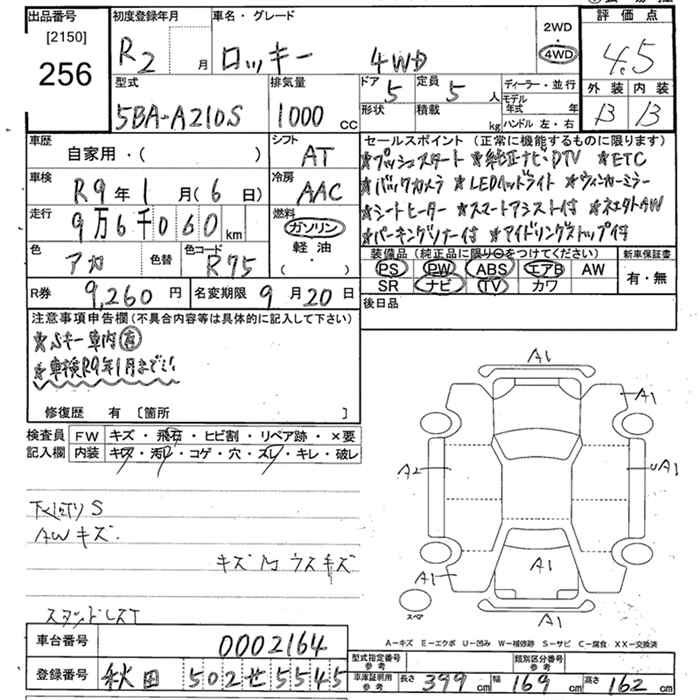 出品番号
[2150]
256
初度登録年月
R2 月
車名・グレード
ロッキー 4WD
2WD
4WD
評価点
4.5
型式
5BA-A210S
排気量
1000 CC
ドア 5
定員 5 人
形状
積載 kg
ディーラー・並行
モデル年式 年
ハンドル 左・右
外装 内装
B B
車歴
自家用・( )
シフト
AT
車検
R9年1月(6日)
冷房
AAC
走行
9万6千060km
燃料
ガソリン
軽油
・( )
色 アカ
色替
色コード R75
セールスポイント (正常に機能するものに限ります)
★プッシュスタート ★純正ナビ・DTV ★ETC
★バックカメラ ★LEDヘッドライト ★ウィンカーミラー
★シートヒーター ★スマートアシスト付
★パーキングソナー付 ★アイドリングストップ付
装備品 (純正品に限り○をつけてください)
新車保証書
PS PW ABS エアB AW
SR ナビ TV カワ
有・無
R券 9,260円
名変期限 9月20日
後日品
注意事項申告欄(不具合内容等は具体的に記入して下さい)
★Sキー車内有
★車検R9年1月まで!!
修復歴 有 [箇所 ]
検査員記入欄
FW キズ・飛石・ヒビ割・リペア跡・×要
内装 キズ・汚レ・コゲ・穴・スレ・キレ・破レ
S
AWキズ.
キズ ウスキズ
A1
A1
A2
UA1
A1
A1
A1
スペア
A-キズ E-エクボ U-凹み W-補修跡 S-サビ C-腐食 XX-交換済
車台番号
0002164
登録番号
秋田 502 せ 5545
型式指定番号 参考
類別区分番号 参考
車庫証明用 参考
長さ 399cm 幅 169cm 高さ 162cm